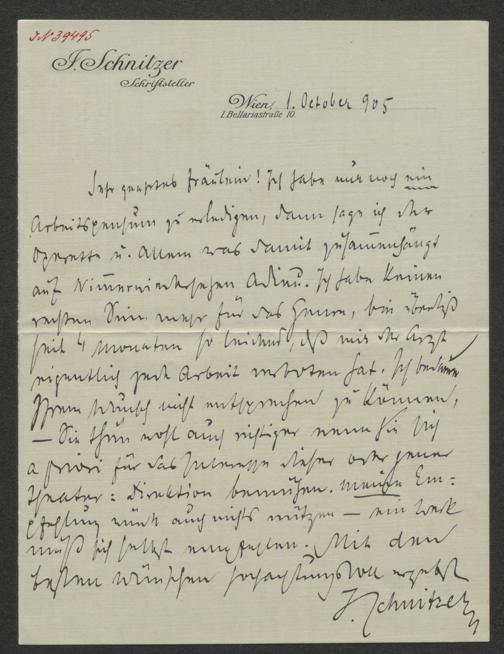 J.N 39495
J. Schnitzer
Schriftsteller
Wien, 1. October 905
I. Bellariastraße 10.
Sehr geehrtes Fräulein! Ich habe nur noch ein
Arbeitspensum zu erledigen, dann sage ich der
Operette u. Allem was damit zusammenhängt
auf Nimmerwiedersehen Adieu. Ich habe keinen
rechten Sinn mehr für das Genre, bin überdiß
seit 4 Monaten so leidend, daß mir der Arzt
eigentlich jede Arbeit verboten hat. Ich bedaure,
Ihrem Wunsch nicht entsprechen zu können,
— Sie thun wohl auch richtiger wenn Sie sich
a priori für das Interesse dieser oder jener
Theater-Direktion bemühen. Meine Em-
pfehlung würde auch nichts nützen — ein Werk
muß sich selbst empfehlen. Mit den
besten Wünschen hochachtungsvoll ergebenst
J. Schnitzer